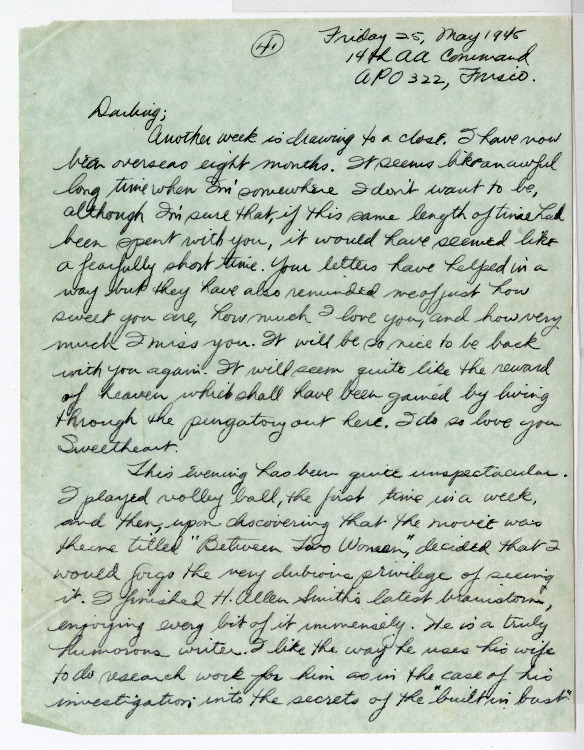 41
Friday 25, May 1945
14th AA Command
APO 322, Frisco.
Darling;
Another week is drawing to a close. I have now
been overseas eight months. It seems like an awful
long time when I'm somewhere I don't want to be,
although I'm sure that, if this same length of time had
been spent with you, it would have seemed like
a fearfully short time. Your letters have helped in a
way but they have also reminded me of just how
sweet you are, how much I love you, and how very
much I miss you. It will be so nice to be back
with you again. It will seem quite like the reward
of heaven which shall have been gained by living
through the purgatory out here. I do so love you
Sweetheart.
This evening has been quite unspectacular.
I played volley ball, the first time in a week,
and then, upon discovering that the movie was
the one titled "Between Two Women", decided that I
would forgo the very dubious privilege of seeing
it. I finished H. Allen Smith's latest brainstorm,
enjoying every bit of it immensely. He is a truly
humorous writer. I like the way he uses his wife
to do research work for him as in the case of his
investigation into the secrets of the "built in bust"